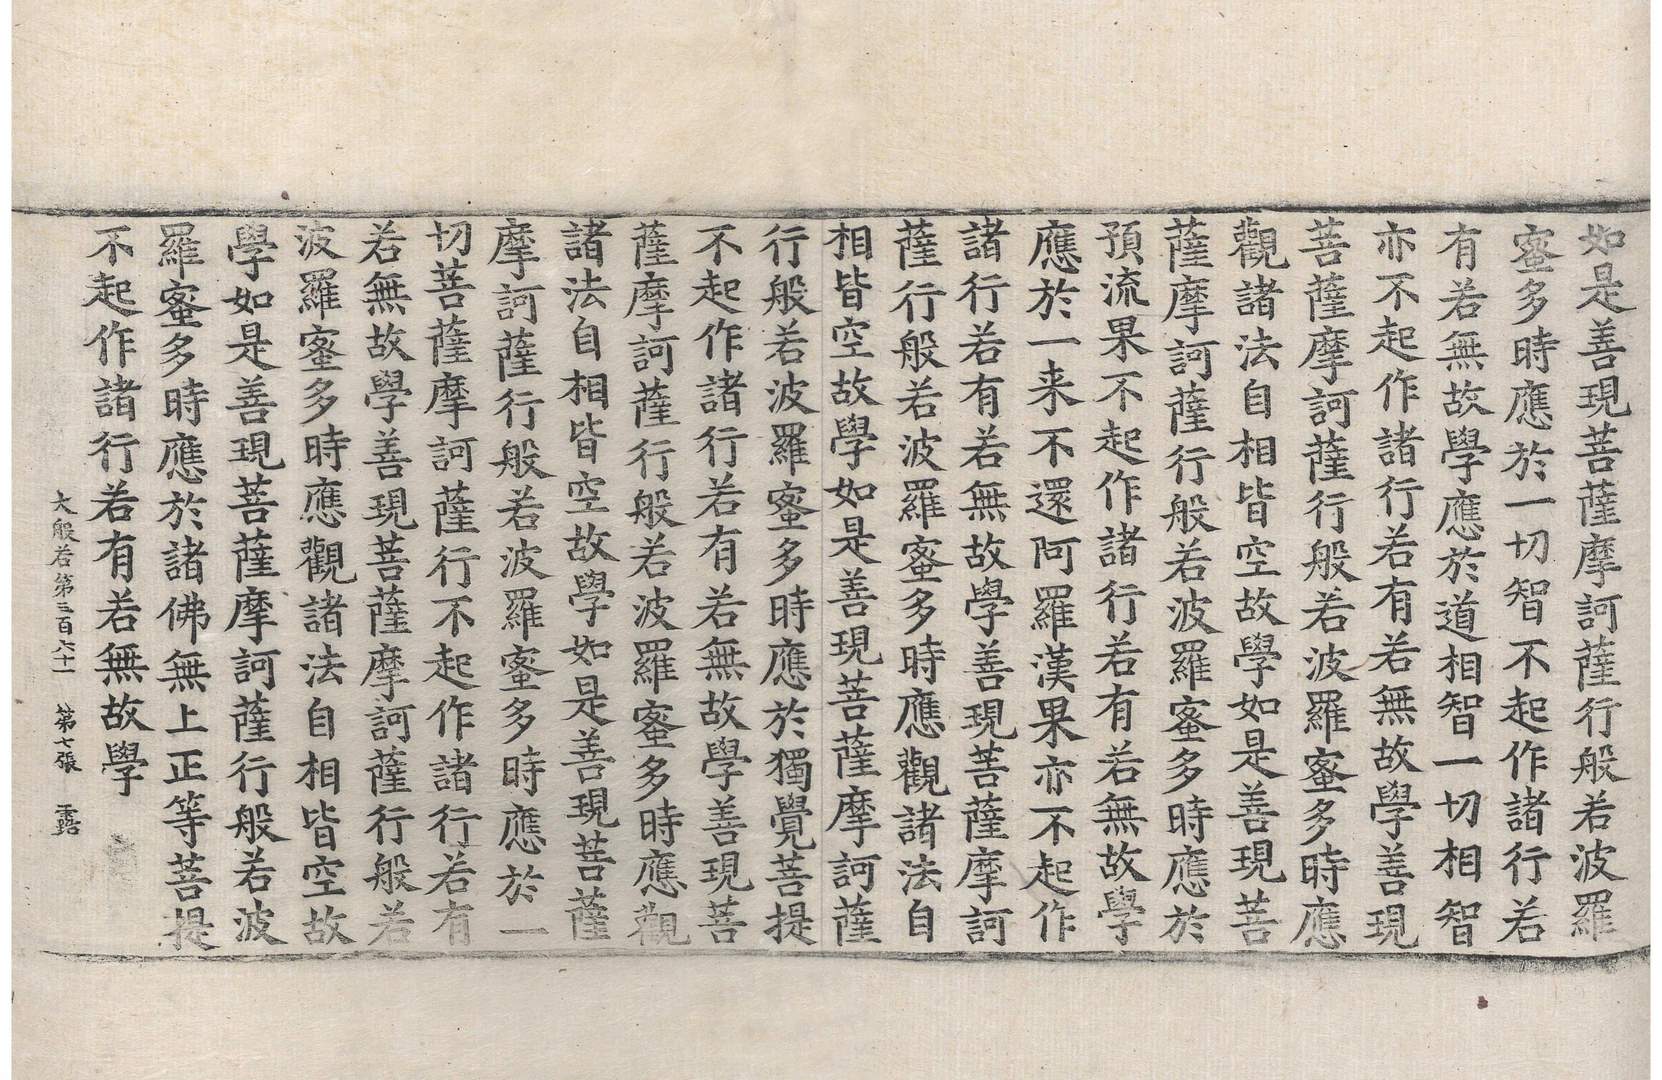 如是善現菩薩摩訶薩行般若波羅
蜜多時應於一切智不起作諸行若
有若無故學應於道相智一切相智
亦不起作諸行若有若無故學善現
菩薩摩訶薩行般若波羅蜜多時應
觀諸法自相皆空故學如是善現菩
薩摩訶薩行般若波羅蜜多時應於
預流果不起作諸行若有若無故學
應於一来不還阿羅漢果亦不起作
諸行若有若無故學善現菩薩摩訶
薩行般若波羅蜜多時應觀諸法自
相皆空故學如是善現菩薩摩訶薩
行般若波羅蜜多時應於獨覺菩提
不起作諸行若有若無故學善現菩
薩摩訶薩行般若波羅蜜多時應觀
諸法自相皆空故學如是善現菩薩
摩訶薩行般若波羅蜜多時應於一
切菩薩摩訶薩行不起作諸行若有
若無故學善現菩薩摩訶薩行般若
波羅蜜多時應觀諸法自相皆空故
學如是善現菩薩摩訶薩行般若波
羅蜜多時應於諸佛無上正等菩提
不起作諸行若有若無故學
大般若第三百六十一 第七張 露